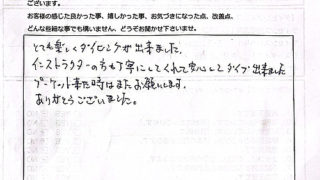 ございます。
お客様の感じた良かった事、嬉しかった事、お気づきになった点、改善点、
どんな些細な事でも構いません、どうぞお聞かせ下さいませ。
とても楽しくダイビングが出来ました。
インストラクターの方も丁寧にしてくれて安心してダイブ出来ました
プーケット来た時はまたお願いします。
ありがとうございました。